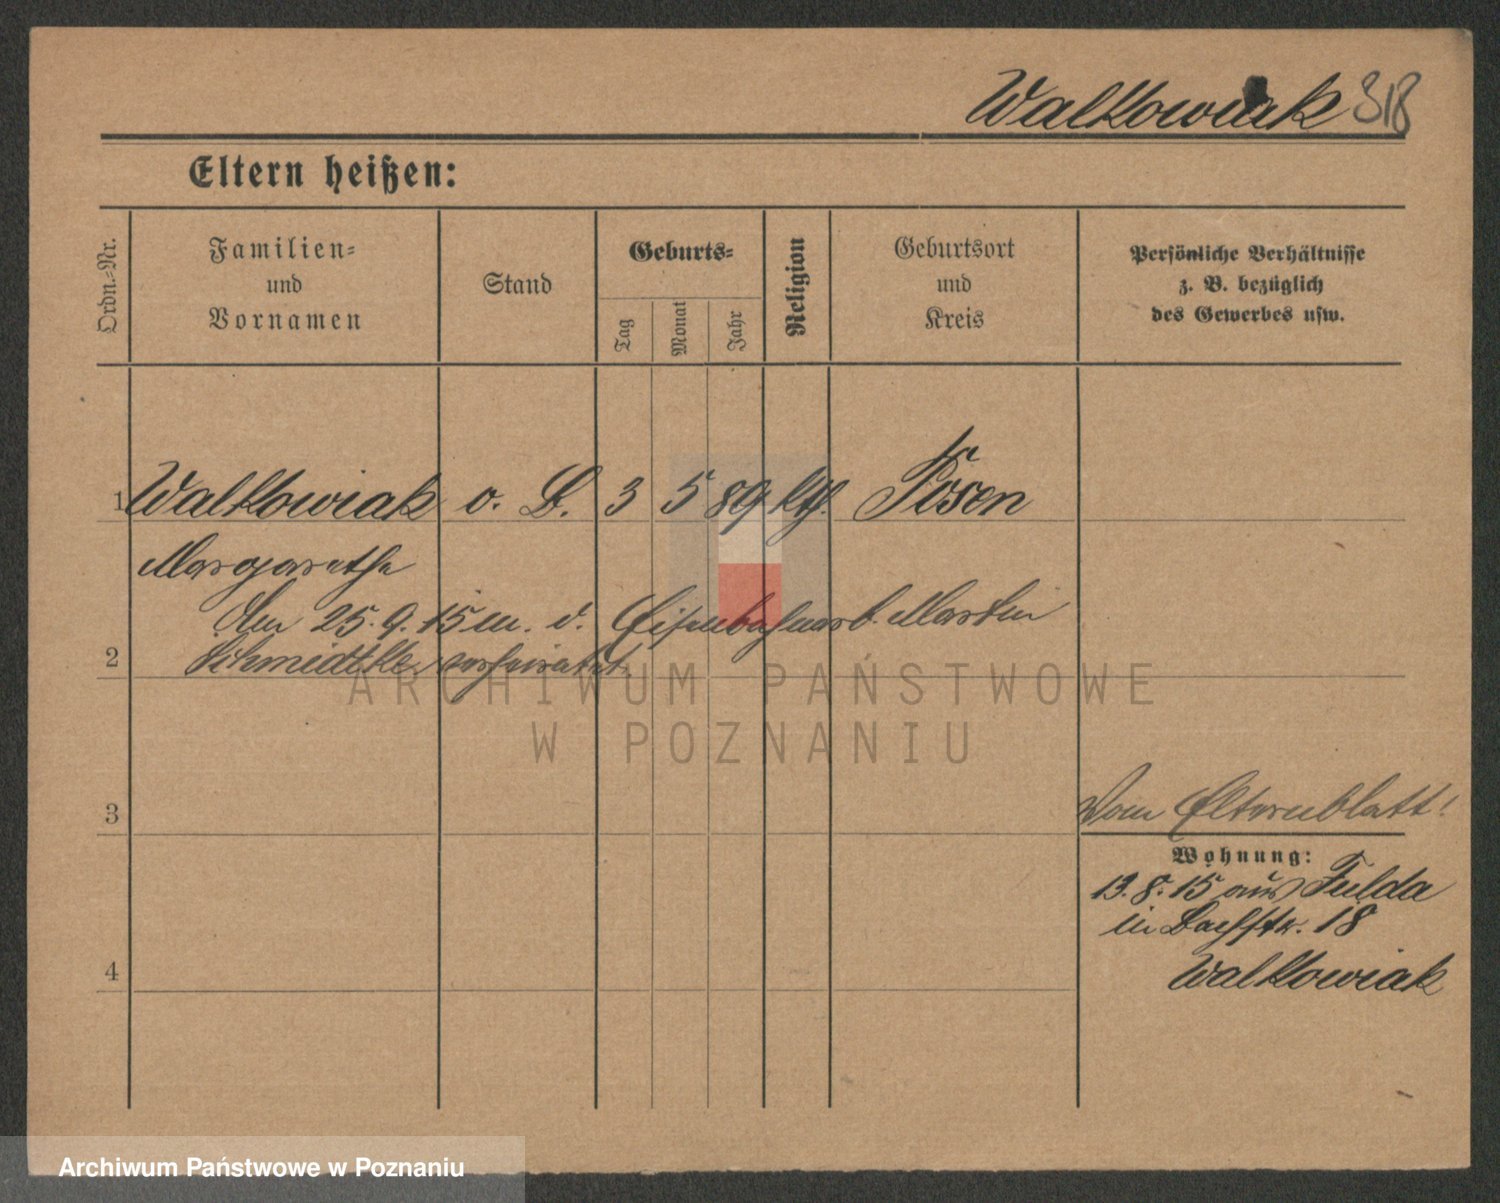 Walkowiak 318
Eltern heißen:
Ordn.-Nr.
Familien-
und
Vornamen
Stand
Geburts-
Tag
Monat
Jahr
Religion
Geburtsort
und
Kreis
Persönliche Verhältnisse
z. B. bezüglich
des Gewerbes usw.
1 Walkowiak o. B. 3 5 89 kth. Posen
Margarethe
Am 25.9.15 m. d. Eisenbahnarb. Martin
2 Schmidtke verheiratet.
ARCHIWUM PAŃSTWOWE
W POZNANIU
3
Vom Elternblatt!
Wohnung:
13.8.15 aus Fulda
in Bachstr. 18
4 Walkowiak
Archiwum Państwowe w Poznaniu